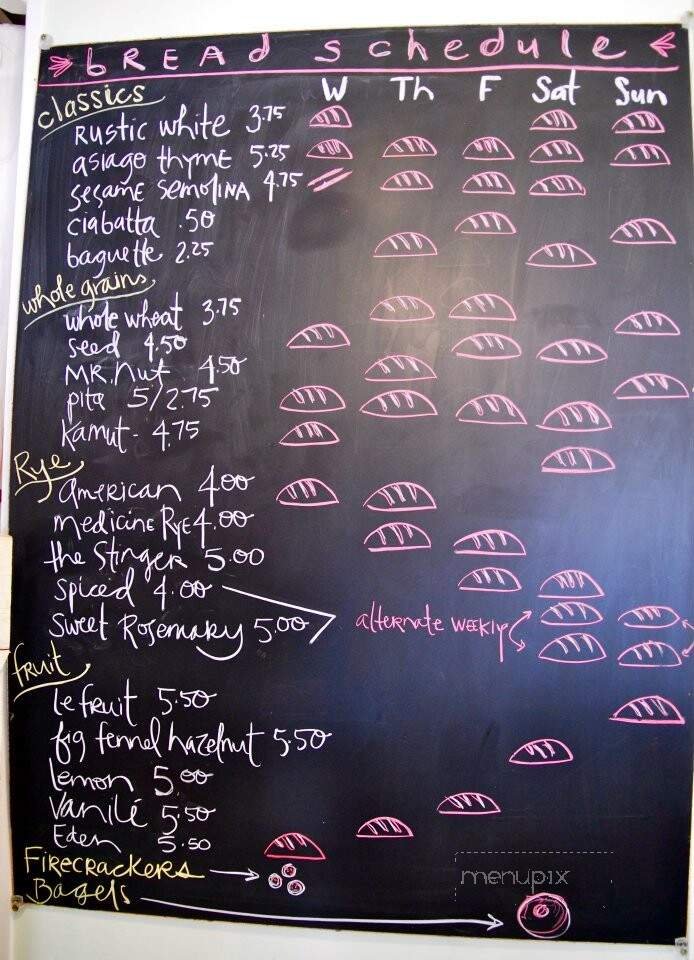 bREAd schedule
W Th F Sat Sun
classics
Rustic white 3.75
asiago thyme 5.25
sesame semolina 4.75
ciabatta .50
baguette 2.25
whole grains
whole wheat 3.75
seed 4.50
MR. nut 4.50
pita 5/2.75
Kamut - 4.75
Rye
american 4.00
medicine Rye 4.00
the Stinger 5.00
spiced 4.00
Sweet Rosemary 5.00
alternate weekly
fruit
le fruit 5.50
fig fennel hazelnut 5.50
lemon 5.00
Vanilé 5.50
Eden 5.50
FIRECRACKERS
Bagels
menupix